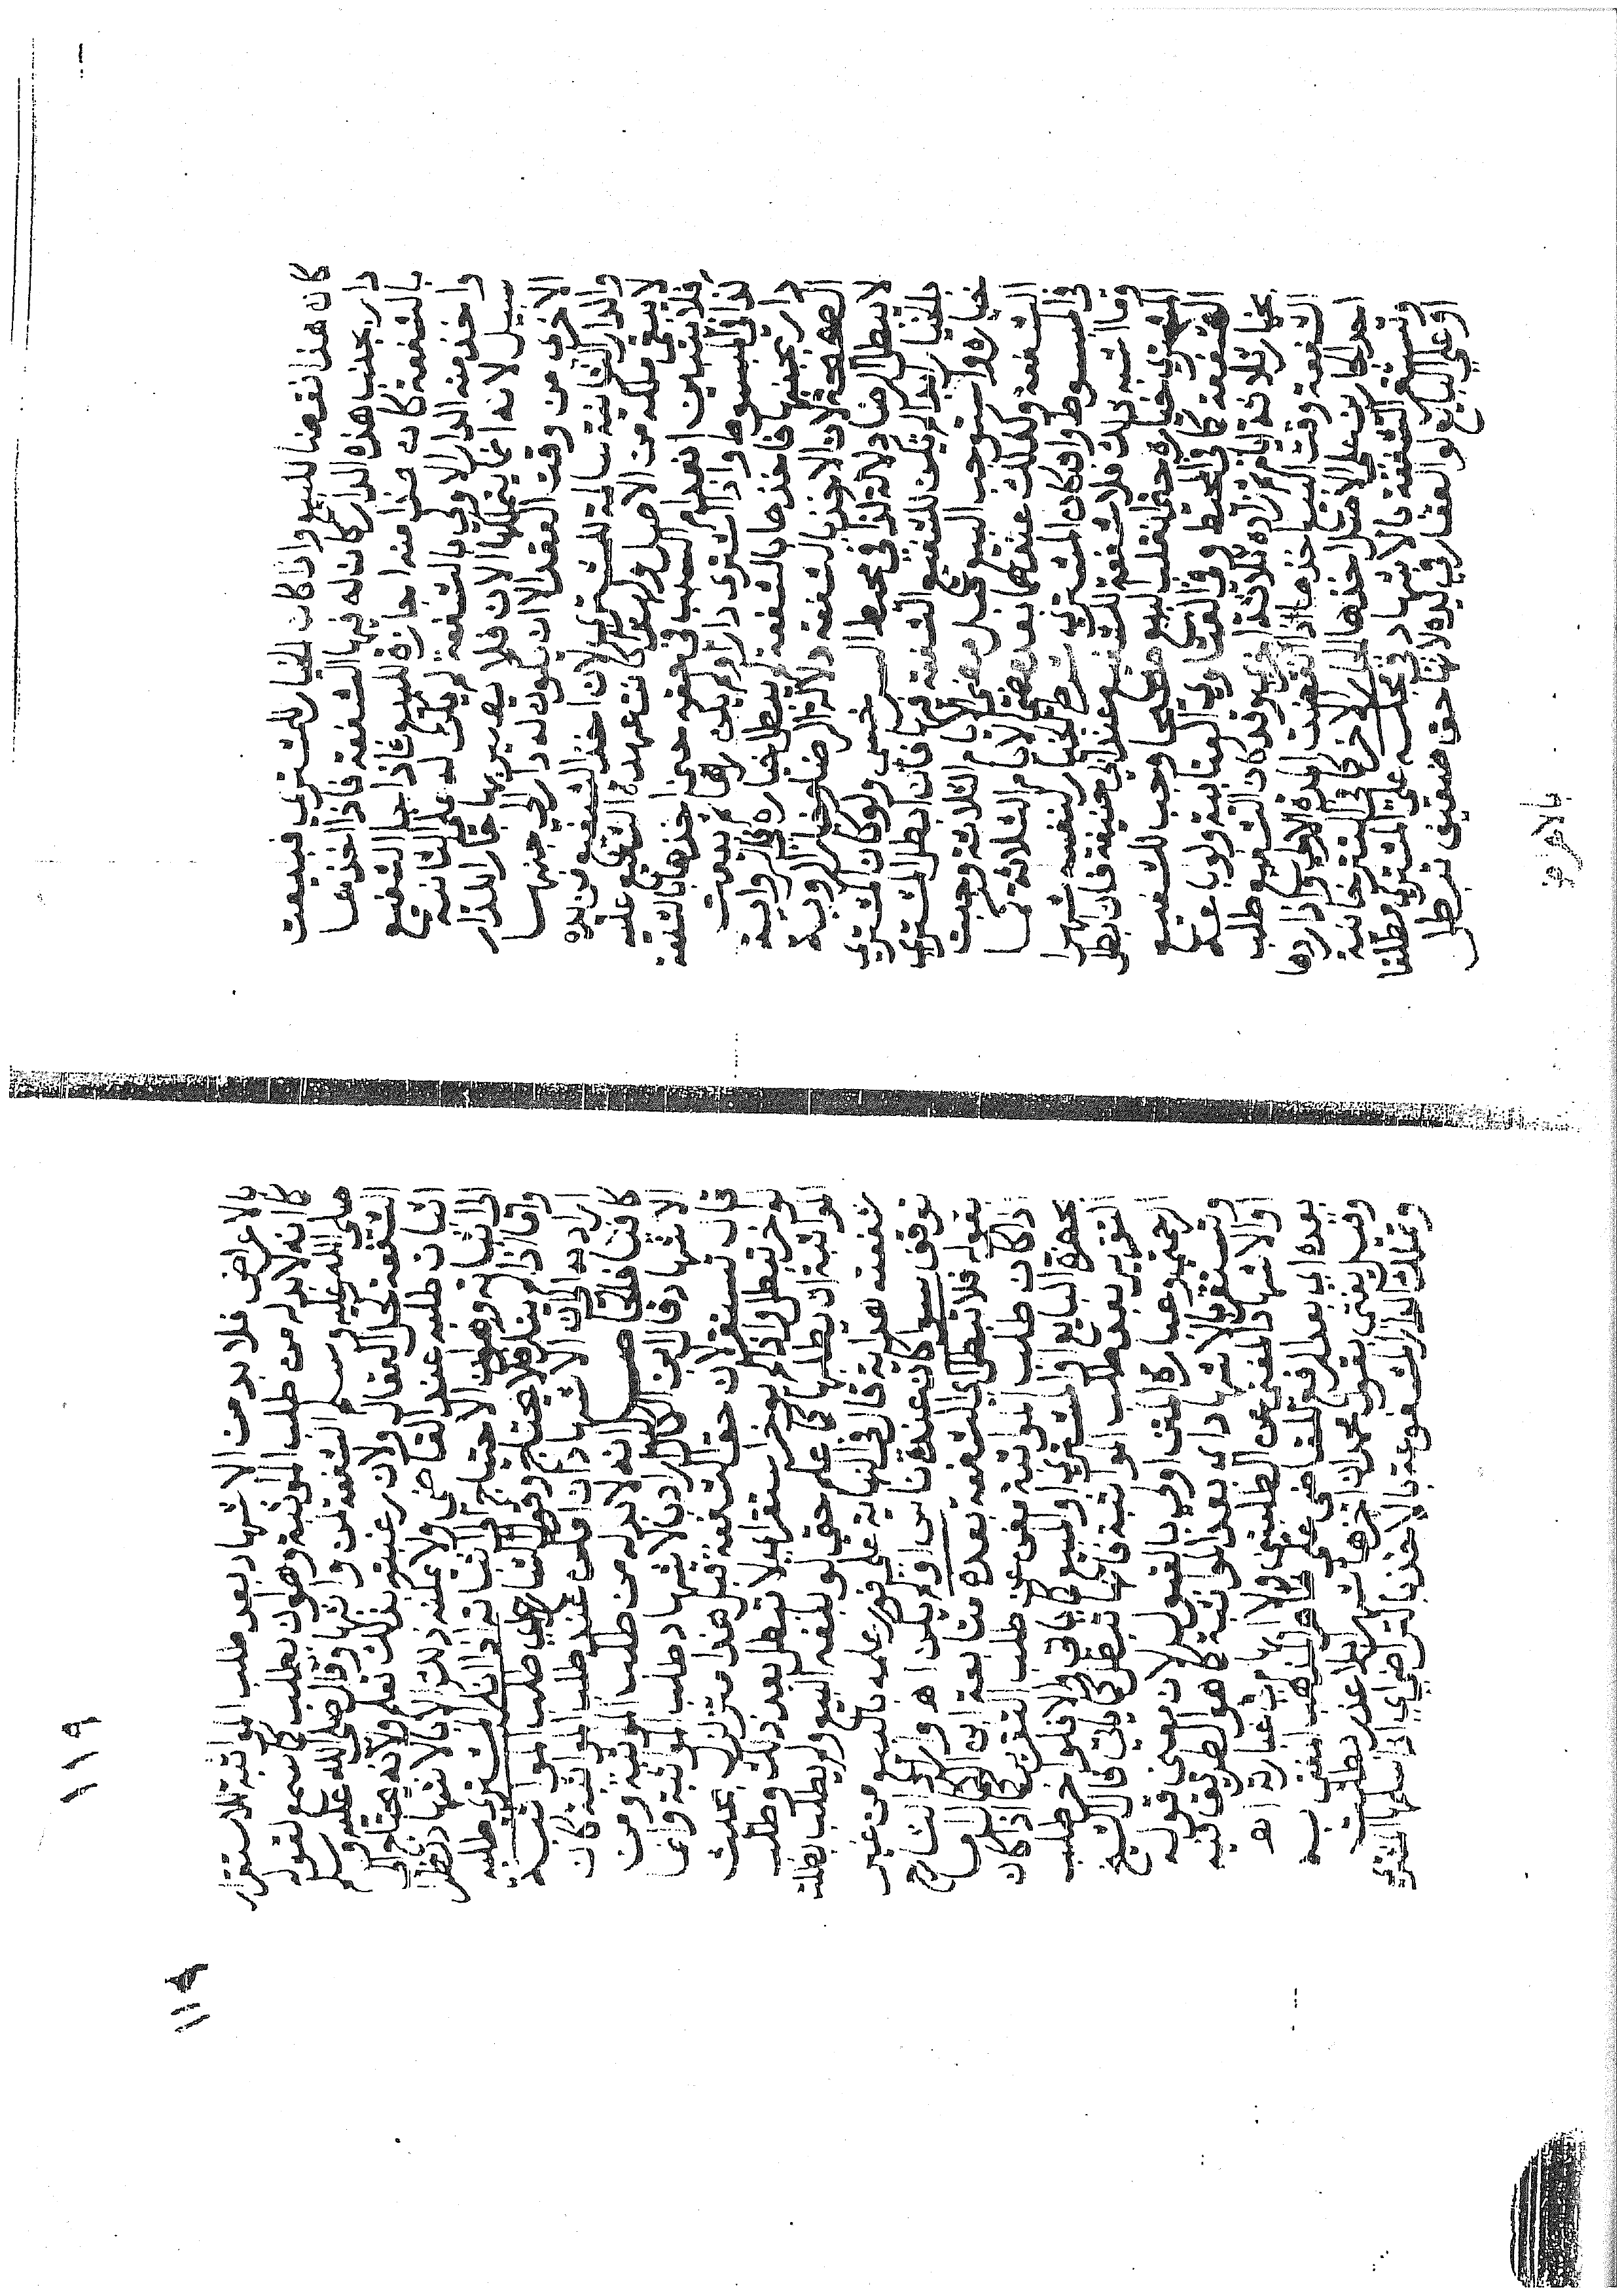 كان هذا نقضا للبيع واذا كان الخيار للمشتري فبيعت
دار بجنب هذه الدار كان له فيها الشفعة فاذا اخذها
بالشفعة كان هذا منه اجازة للبيع فاذا جا الشفيع
واخذ منه الدار الاولي بالشفعة لم يكن له علي الثانية
سبيل لانه انما يتملكها الان فلا يصير بها جارا للدار
الاخري من وقت العقد الا ان تكون له دار الي جنبها
والدار الثانية سالمة للمشتري لان اخذ الشفيع من يده
لا ينفي ملكه من الاصل ولهذا كانت عهدة الشفيع عليه
فلا يتبين انعدام السبب في حقه حين اخذها بالشفعة
كذا في المبسوط واذا اشتري دارا ولم يكن رآها ثم بيعت
دار بجنبها فاخذها بالشفعة لم يبطل خياره في رواية
الصحيحة لان الاخذ بالشفعة دلالة الرضا وخيار الروية
لا يبطل بالرضا دلالة كذا في محيط السرخسي ولو كان المشتري
بالخيار ابدا لم يكن للشفيع الشفعة فيها فان ابطل المشتري
خياره واستوجب البيع قبل مضي الايام الثلاثة وجبت
الشفعة وكذلك عندهما بعد مضي الايام الثلاثة كما
في المبسوط واذا كان المشتري شرط الخيار لنفسه شهرا
وما اشبه ذلك فلا شفعة للشفيع عند ابي حنيفة فان ابطل
المشتري خياره حتي انقلب البيع صحيحا وجب للشفيع
الشفعة كما في المحيط وفي الفتاوي العتابية ولو باعه
بخيار ثلاثة ايام ثم زاده ثلاثة اخري وقد كان الشفيع طلب
الشفعة وقت البيع اخذها اذا انقضت المدة الاولي واذا ردها
احد الجارين علي الاخر اخذها الجار الاخر كما في التترخانية
وتستقر الشفعة بالاشهاد في مجلسه علي المشتري مطلقا
او علي البايع لو العقار في يده لانها حق ضعيف تبطل
بالاعراض
١١٩
١١٩
بالاعراض فلا بد من الاشهاد بعد طلب المواثبة للاستقرار
كانه لا بد له من طلب المواثبة وهو ان يطلب كما سمع لقوله
صلي الله عليه وسلم الشفعة لمن واثبها وقال صلي الله عليه وسلم
الشفعة كحل العقال ولان رغبته بذلك تعلم ولانه يحتاج الي
اثبات طلبه عند القاضي ولا يمكنه ذلك الا بالاشهاد ظاهرا
الي اثباته وهو ان الاحتياج الي اثباته اذا انكر المشتري طلبه
وقا اذا لم ينكر فلا يحتاج وقول الشارح طلب المواثبة
اراد به الي ان الاشهاد ان اوقع عند طلب المواثبة كان
كافيا فالحاصل انه لا بد له من طلب المواثبة ومن
الاشهاد وقال ابن الكمال اراد بالاشهاد طلب المواثبة وانما
قال تستقر لان حق الشفعة قبل هذا متزلزل بحيث
لو اخر تبطل واذا لم يوخر استقر اي لا تبطل بعد ذلك وطلب
المواثبة ان يطلبها كما علم حتي لو بلغه البيع ولم يطلب بطلت
شفعته هداية قال في النهاية علي فور علمه بالبيع من غير
توقف سوا كان عنده ناس او لم يكن اهـ واراد الشارح
بقوله فلا تبطل اي الشفعة بعده متابعة ابن الكمال ما
اذا كان طلب المواثبة مغن عن طلب التقرير كما اذا كان
بحضرة البايع او المشتري او المبيع كما ياتي والا فلو اخر طلب
التقرير بعد طلب المواثبة فانها تبطل كما ياتي قال الشيخ
الرحمتي وعبارة المتن اولي بالقبول لان معني قوله
وتستقر بالاشهاد اي بعد المواثبة كما هو الطريق فيه
والاشهاد المغني عن الطلبين والايراد بعبارة اهـ
بعده اي بعد رفع القاضي علي ظاهر المذهب المفتي به
وقيل يفتي بقول محمد ان اخرها شهرا بلا عذر بطلت
وتملك الدار المشفوعة بالاخذ بالتراضي اي اذا سلمها المشتري